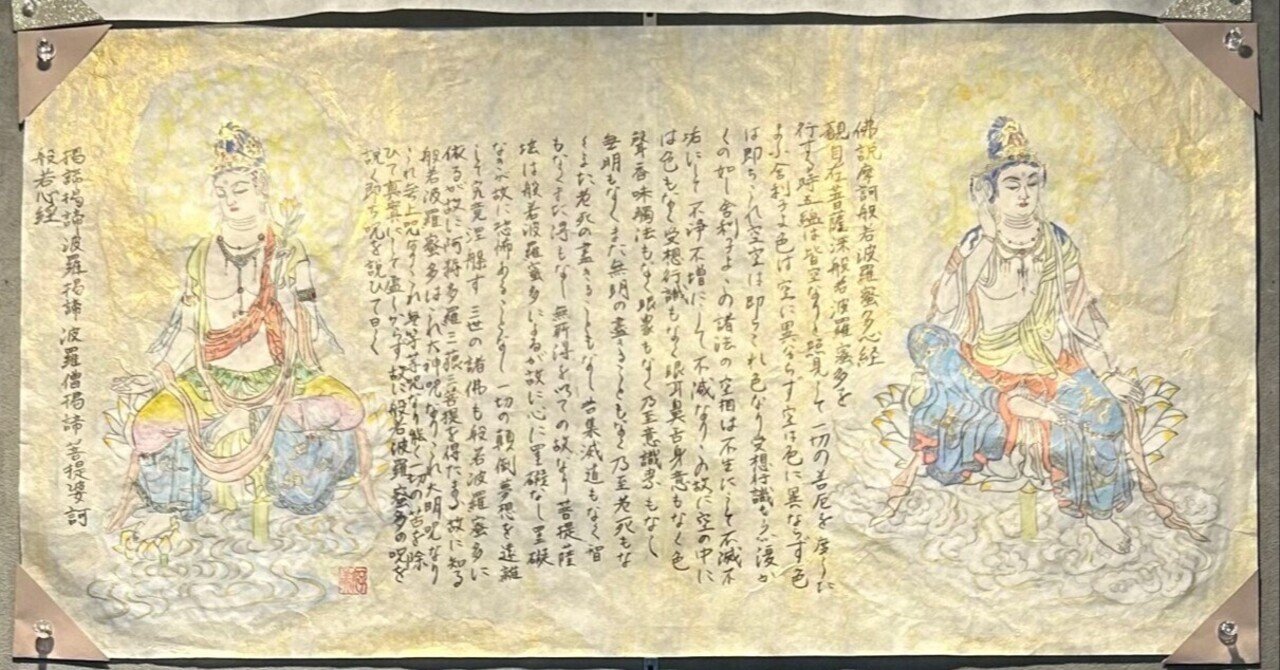 佛説摩訶般若波羅蜜多心経
観自在菩薩深般若波羅蜜多を
行ずる時五蘊は皆空なりと照見して一切の苦厄を度した
まふ舎利子よ色は空に異ならず空は色に異ならず色
は即ちこれ空空は即ちこれ色なり受想行識もまた復か
くの如し舎利子よこの諸法の空相は不生にして不滅不
垢にして不浄不増にして不減なりこの故に空の中に
は色もなく受想行識もなく眼耳鼻舌身意もなく色
聲香味觸法もなく眼界もなく乃至意識界もなし
無明もなくまた無明の盡きることもなく乃至老死もな
くまた老死の盡きることもなし苦集滅道もなく智
もなくまた得もなし無所得を以ての故なり菩提薩
埵は般若波羅蜜多によるが故に心に罣礙なし罣礙
なきが故に恐怖あることなし一切の顛倒夢想を遠離
して究竟涅槃す三世の諸佛も般若波羅蜜多に
依るが故に阿耨多羅三藐三菩提を得たまふ故に知る
般若波羅蜜多はこれ大神呪なりこれ大明呪なり
これ無上呪なりこれ無等等呪なり能く一切の苦を除
ひて真実にして虚しからず故に般若波羅蜜多の呪を
説く即ち呪を説ひて曰く
揭諦揭諦波羅揭諦波羅僧揭諦菩提婆訶
般若心経